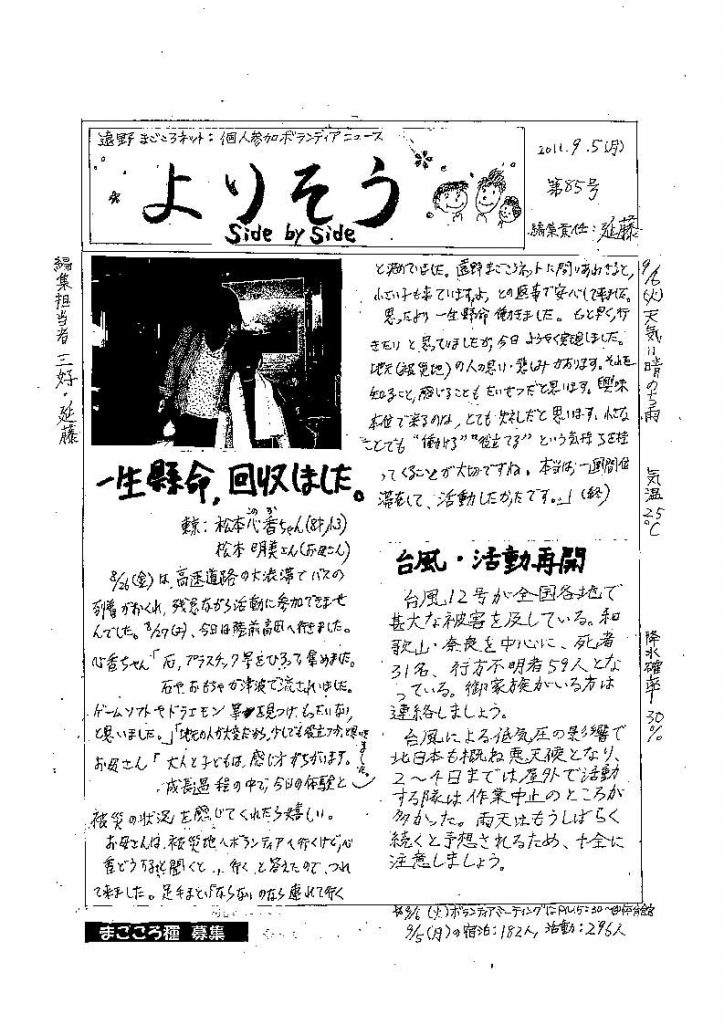 遠野まごころネット:個人参加ボランティアニュース
よりそう
Side by Side
2011.9.5(月)
第85号
編集責任:延藤
編集担当者 三好・延藤
9/6(火)天気は晴のち雨 気温25℃ 降水確率30%
一生懸命,回収しました。
東京:松本心香ちゃん(8才,小3)
松本明美さん(お母さん)
8/26(金)は、高速道路の大渋滞でバスの
到着がおくれ、残念ながら活動に参加できませ
んでした。8/27(土)、今日は陸前高田へ行きました。
心香ちゃん「石,プラスチック等をひろって集めました。
石やおもちゃが津波で流されいました。
ゲームソフトやドラエモン 等を見つけ、もったいない,
と思いました。」「地元の人が大変だから,少しでも役立つかと思
いました。」
お母さん「大人と子どもは,感じ方がちがいます。
成長過程の中で,今日の体験と
被災の状況を感じてくれたら嬉しい。
お母さんは、被災地へボランティアへ行くけど,心
香どうすると聞くと,,行く,と答えたので、つれ
て来ました。足手まといならないのなら連れて行く
と決めていました。遠野まごころネットに問いあわせると,
小さい子も来ていますよ,との返事で安心して来ました。
思ったより一生懸命働きました。もっと早く,行
きたいと思っていましたが,今日ようやく実現しました。
地元(被災地)の人の思い・悲しみがあります。それを
知ること,感じることもたいせつだと思います。興味
本位で来るのは,とても失礼だと思います。小さな
ことでも"働ける""役立てる"という気持ちを持
ってくることが大切ですね。本当は,一週間位
滞在して、活動したかったです。」(終)
台風・活動再開
台風12号が全国各地で
甚大な被害を及している。和
歌山・奈良を中心に、死者
31名、行方不明者59人とな
っている。御家族がいる方は
連絡しましょう。
台風による低気圧の影響で
北日本も概ね悪天候となり、
2〜4日までは屋外で活動
する隊は作業中止のところが
多かった。雨天はもうしばらく
続くと予想されるため、十全に
注意しましょう。
まごころ種 募集
9/6(火)ボランティアミーティングはPM5:30〜
9/5(月)の宿泊:182人,活動:296人